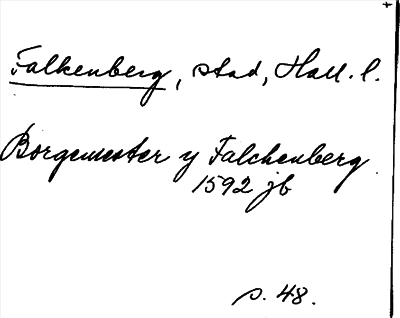 Falkenberg, stad, Hall. l.
Borgemester y Falchenberg
1592 jb
s. 48.